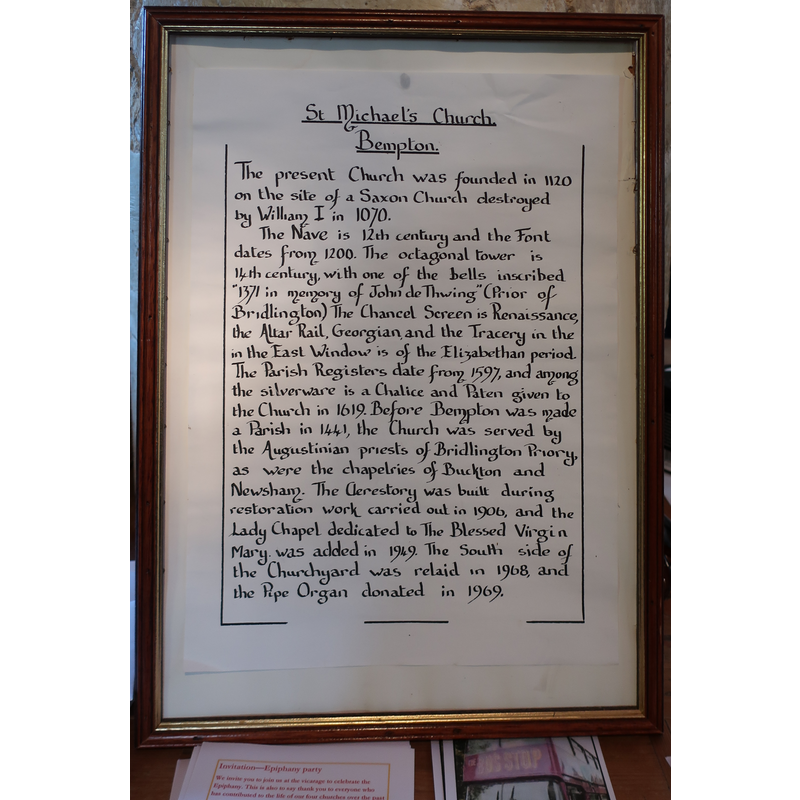 St Michael's Church.
Bempton.
The present Church was founded in 1120
on the site of a Saxon Church destroyed
by William I in 1070.
The Nave is 12th century and the Font
dates from 1200. The octagonal tower is
14th century, with one of the bells inscribed
"1371 in memory of John de Thwing" (Prior of
Bridlington) The Chancel Screen is Renaissance,
the Altar Rail, Georgian, and the Tracery in the
in the East Window is of the Elizabethan period.
The Parish Registers date from 1597, and among
the silverware is a Chalice and Paten given to
the Church in 1619. Before Bempton was made
a Parish in 1441, the Church was served by
the Augustinian priests of Bridlington Priory,
as were the chapelries of Buckton and
Newsham. The Clerestory was built during
restoration work carried out in 1906, and the
Lady Chapel dedicated to The Blessed Virgin
Mary. was added in 1949. The South side of
the Churchyard was relaid in 1968, and
the Pipe Organ donated in 1969.
Invitation—Epiphany party
We invite you to join us at the vicarage to celebrate the
Epiphany. This is also to say thank you to everyone who
has contributed to the life of our four churches over the past
BUS STOP